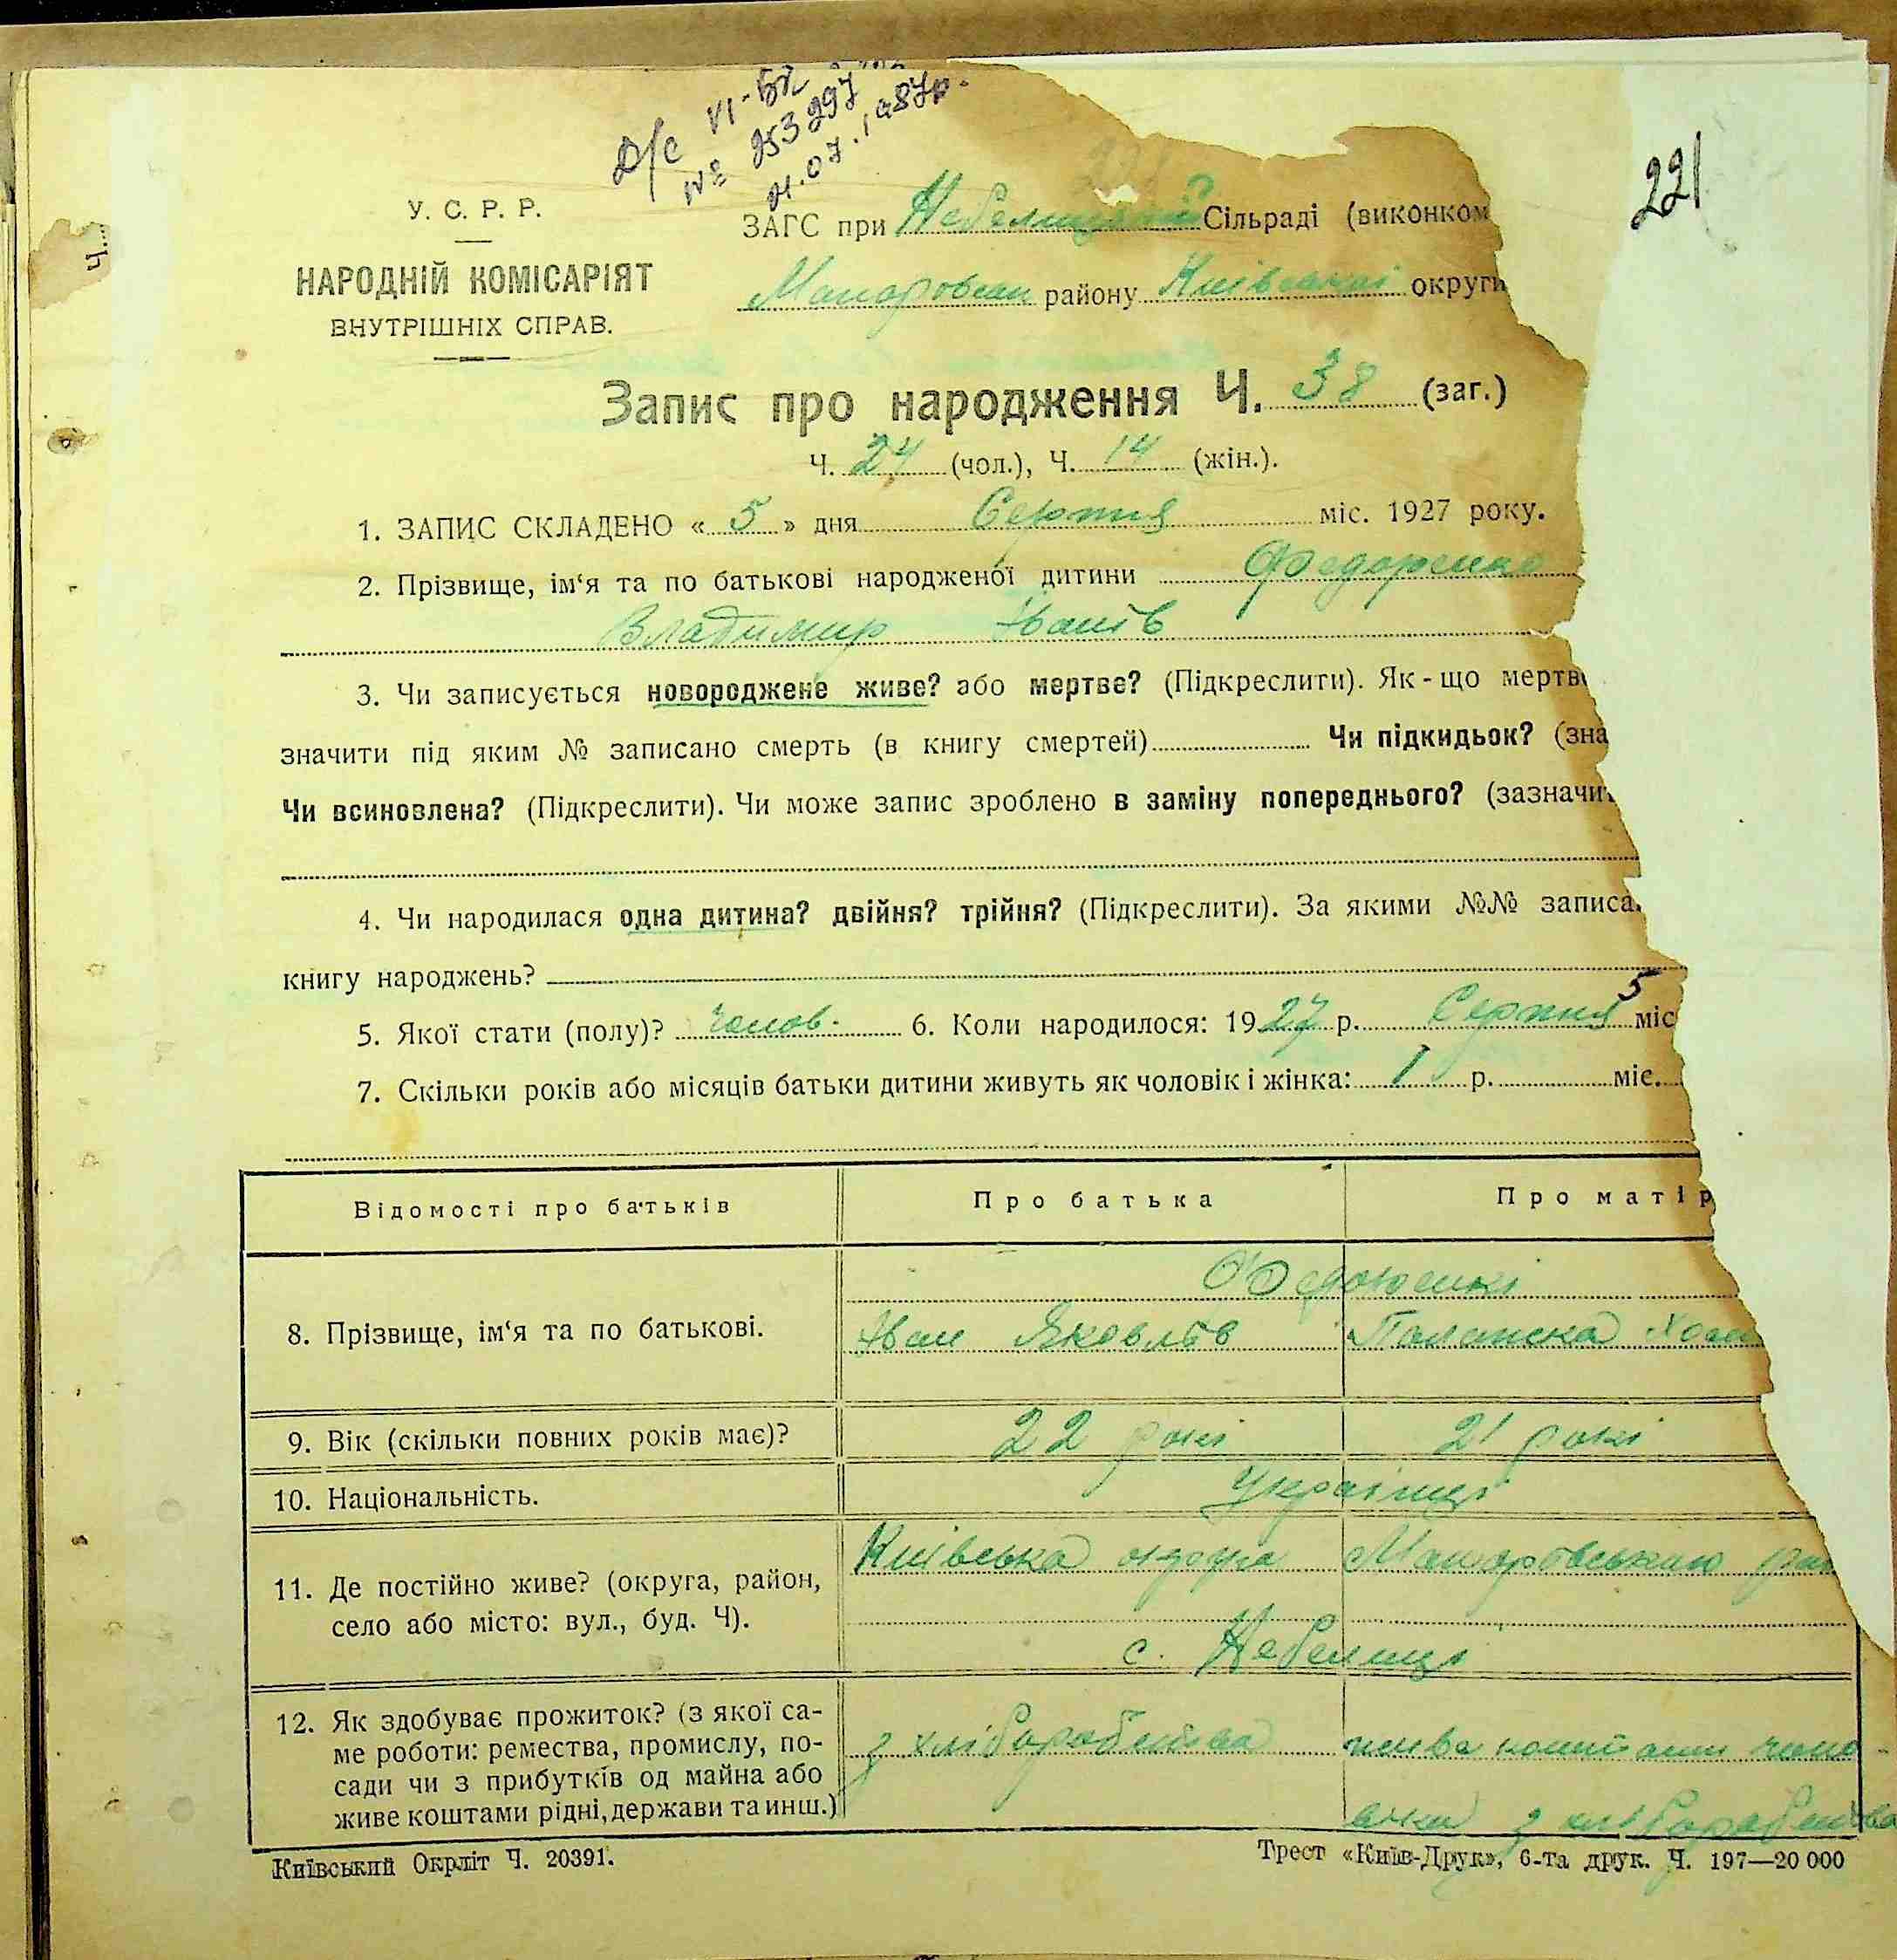 Д/С VI-БК
№ 253297
21.07.1987р.
221
Ч.
У. С. Р. Р.
НАРОДНІЙ КОМІСАРІЯТ
ВНУТРІШНІХ СПРАВ.
ЗАГС при Небелицькій Сільраді (виконком
Макаровськ району Київської округи
Запис про народження Ч. 38 (заг.)
Ч. 24 (чол.), Ч. 14 (жін.).
1. ЗАПИС СКЛАДЕНО « 5 » дня Серпня міс. 1927 року.
2. Прізвище, ім‘я та по батькові народженої дитини Федоренко
Владимир Іванів
3. Чи записується новороджене живе? або мертве? (Підкреслити). Як-що мертв
значити під яким № записано смерть (в книгу смертей) Чи підкидьок? (зна
Чи всиновлена? (Підкреслити). Чи може запис зроблено в заміну попереднього? (зазначит
4. Чи народилася одна дитина? двійня? трійня? (Підкреслити). За якими №№ записа
книгу народжень?
5. Якої стати (полу)? чолов. 6. Коли народилося: 1927 р. Серпня 5 міс
7. Скільки років або місяців батьки дитини живуть як чоловік і жінка: 1 р. міс.
Відомості про батьків Про батька Про матір
8. Прізвище, ім‘я та по батькові. Федоренкі
Іван Яковлів
9. Вік (скільки повних років має)? 22 рокі 21 рокі
10. Національність. Українці
11. Де постійно живе? (округа, район, село або місто: вул., буд. Ч). Київська округа Макаровського рай
с. Небелиці
12. Як здобуває прожиток? (з якої са-
ме роботи: ремества, промислу, по-
сади чи з прибутків од майна або
живе коштами рідні, держави та инш.)
з хліборобства живе коштами чоло
віка з хліборобства
Київський Окрліт Ч. 20391.
Трест «Київ-Друк», 6-та друк. Ч. 197—20 000